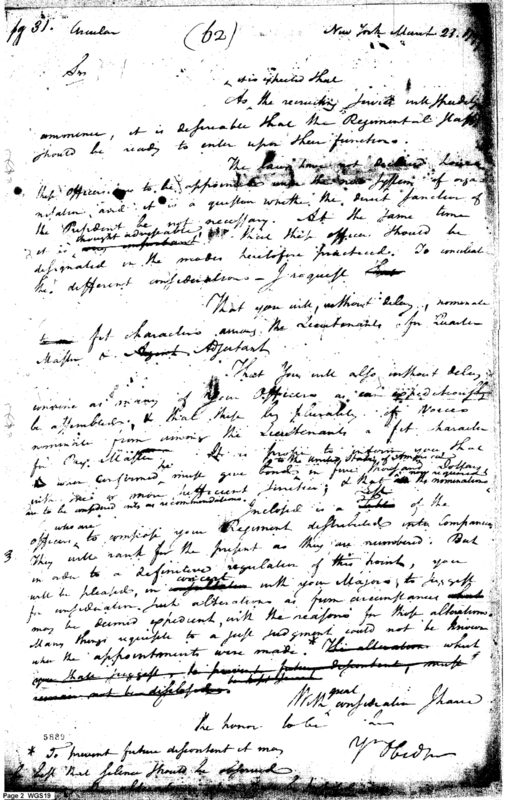 pg 31. Circular (62) New York March 23. 17
Sir
it is expected that
As the recruiting service will speedily
commence, it is desireable that the Regimental Staff
should be ready to enter upon their functions.
The laws have not declared how
these officers are to be appointed under the new system of orga
nisation and it is a question whether the direct sanction of
the President be not necessary. At the same time
thought adviseable,
it is very important that these officers should be
designated in the modes heretofore practiced. To conciliate
the different considerations – I request
That you will, without delay, nominate
fit characters among the Lieutenants for Quarter
Master & Agent Adjutant
That You will also without delay
convene as many of your Officers as can expeditiously
be assembled, & that these by plurality of voices
nominate from among the Lieutenants a fit character
for Pay Master. It is proper to inform you that
to the United States of America
he when confirmed, must give bond in five thousand Dollars
with one or more sufficient sureties; & that the nominations
are to be considered only as recommendations.
Inclosed is a list of the
who are
officers to compose your Regiment distributed into Companies
3 They will rank for the present as they are numbered. But
in order to a definitive regulation of this point, you
concert
will be pleased, in with your Majors, to suggest
for consideration such alterations as from circumstances
may be deemed expedient, with the reasons for those alterations
Many things requisite to a just judgment could not be known
when the appointments were made. * The alterations which
you shall suggest, to prevent future discontent, must
remain not be disclosed
With great consideration I have
the honor to be
Yr Obed
5889
* To prevent future discontent it may
best that silence should be observed
Page 2 WGS19